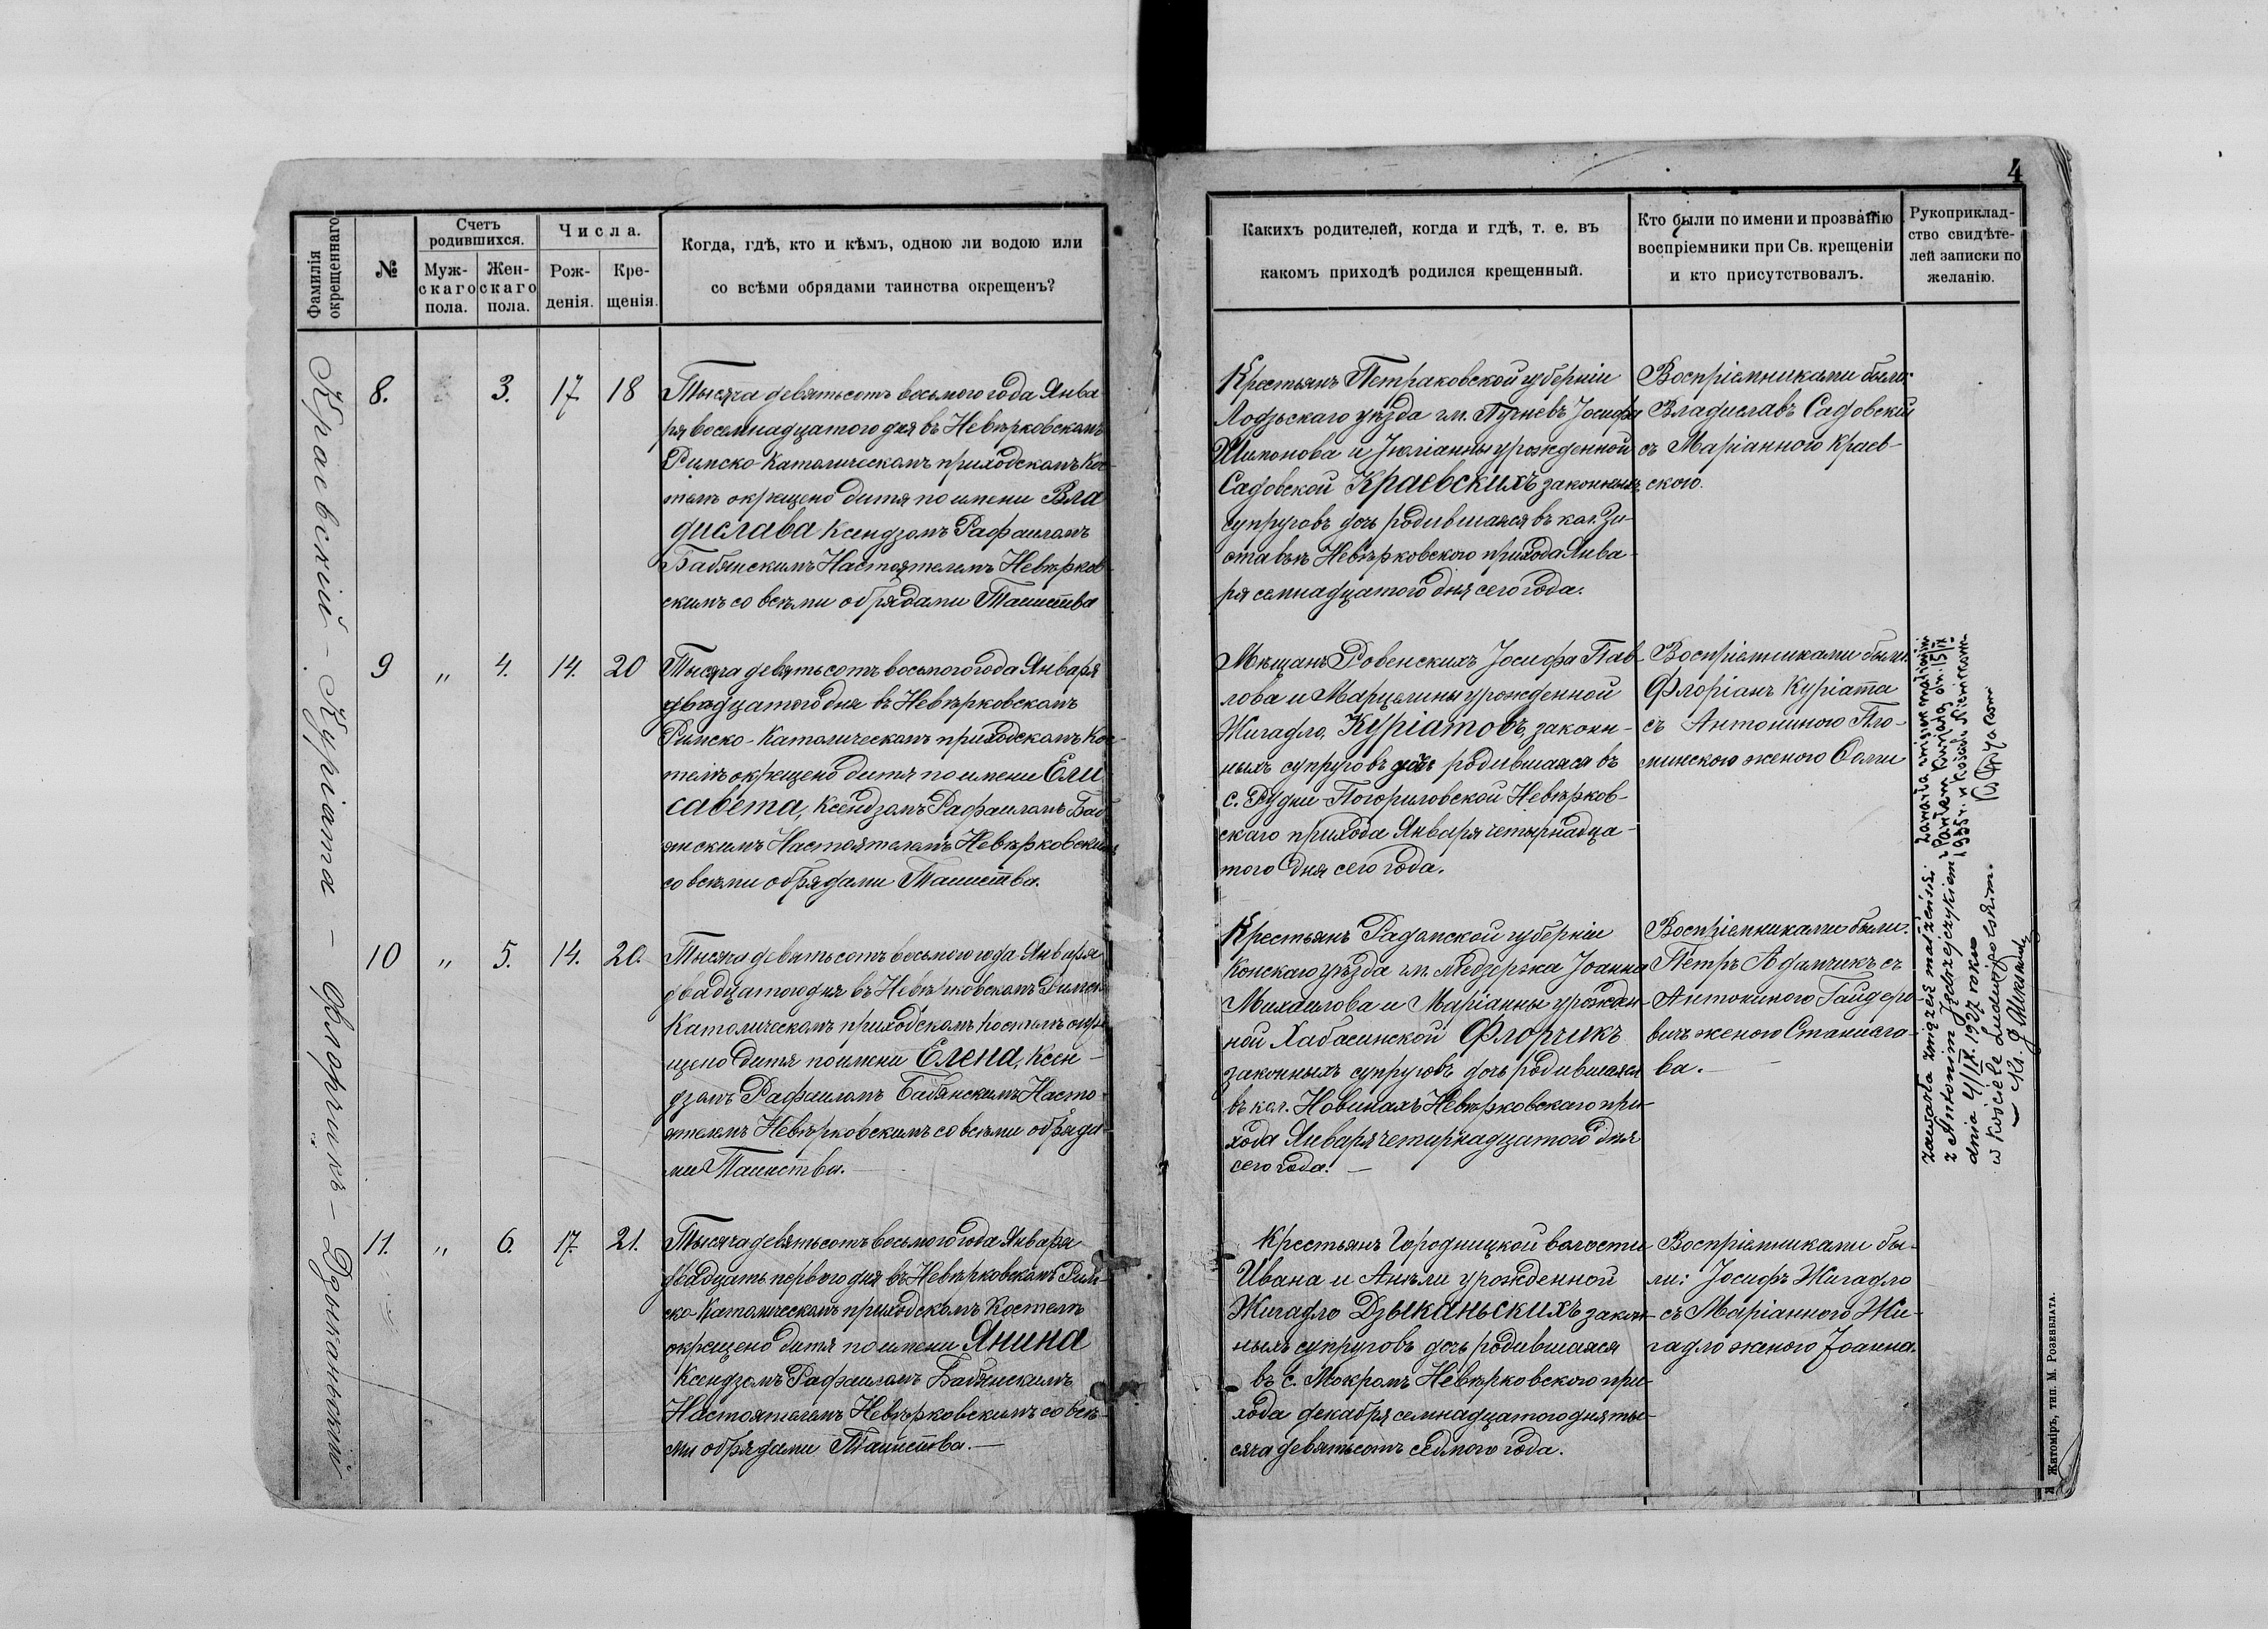 4
Фамилія
окрещеннаго
№
Счетъ
родившихся.
Муж-
скаго
пола.
Жен-
скаго
пола.
Числа.
Рож-
денія.
Кре-
щенія.
Когда, гдѣ, кто и кѣмъ, одною ли водою или
со всѣми обрядами таинства окрещенъ?
Какихъ родителей, когда и гдѣ, т. е. въ
какомъ приходѣ родился крещенный.
Кто были по имени и прозванію
воспріемники при Св. крещеніи
и кто присутствовалъ.
Рукоприклад-
ство свидѣте-
лей записки по
желанію.
Краевскій - Куріата - Флорчикъ - Дзыканьскій
8. 3. 17 18
Тысяча девятьсотъ восьмого года Янва
ря восемнадцатого дня въ Невѣрковскомъ
Римско-Католическомъ приходскомъ Кос-
телѣ окрещено дитя по имени Вла
дислава Ксендзомъ Рафаиломъ
Бабянскимъ Настоятелемъ Невѣрков
скимъ со всѣми обрядами Таинства
Крестьянъ Петраковской губерніи
Лодзьскаго уѣзда гм. Пучневъ Іосифа
Шимонова и Юліанны урожденной
Садовской Краевскихъ законныхъ
супруговъ дочь родившаяся въ кол.
Невѣрковского прихода Янва-
ря семнадцатого дня сего года.
Воспріемниками были:
Владиславъ Садовскій
съ Маріанною Краев-
скою.
9 " 4. 14. 20
Тысяча девятьсотъ восьмого года Января
двадцатого дня въ Невѣрковскомъ
Римско-Католическомъ приходскомъ Кос-
телѣ окрещено дитя по имени Ели
савета, Ксендзомъ Рафаиломъ Баб
янскимъ Настоятелемъ Невѣрковскимъ
со всѣми обрядами Таинства.
Мѣщанъ Ровенскихъ Іосифа Пав-
лова и Марцелины урожденной
Жигадло, Куріатовъ, закон-
ныхъ супруговъ дочь родившаяся въ
с. Рудни-Погориловской Невѣрков-
скаго прихода Января четырнадца-
того дня сего года.
Воспріемниками были:
Флоріанъ Куріата
съ Антониною Пло-
минскою женою
10 " 5. 14. 20.
Тысяча девятьсотъ восьмого года Января
двадцатого дня въ Невѣрковскомъ Римско
Католическомъ приходскомъ костелѣ окре
щено дитя по имени Елена, Ксен-
дзомъ Рафаиломъ Бабянскимъ Насто-
ятелемъ Невѣрковскимъ со всѣми обряда-
ми Таинства.
Крестьянъ Радомской губерніи
Конскаго уѣзда гм. Іоанна
Михаилова и Маріанны урожден-
ной Хабасинской Флорчикъ
законныхъ супруговъ дочь родившаяся
въ кол. Новинахъ Невѣрковскаго при-
хода Января четырнадцатого дня
сего года. -
Воспріемниками были:
Петръ Адамчикъ съ
Антониною Гайдеро-
вичъ женою Станисла-
ва. -
11. " 6. 17. 21.
Тысяча девятьсотъ восьмого года Января
двадцать первого дня въ Невѣрковскомъ Рим-
ско-Католическомъ приходскомъ Костелѣ
окрещено дитя по имени Янина
Ксендзомъ Рафаиломъ Бабянскимъ
Настоятелемъ Невѣрковскимъ со всѣ-
ми обрядами Таинства. -
Крестьянъ Городницкой волости
Ивана и Анели урожденной
Жигадло Дзыканьскихъ закон-
ныхъ супруговъ дочь родившаяся
въ с. Мокромъ Невѣрковского при-
хода декабря семнадцатого дня ты-
сяча девятьсотъ седмого года.
Воспріемниками бы-
ли: Іосифъ Жигадло
съ Маріанною Жи-
гадло женою Іоанна.
Zawarła związek małżeński
z Antonim Jędrzejczykiem
dnia 4/IX. 1927 roku
w Kościele Ludwipolskim.
Zawarła związek małżeński
z Pawłem
1935 r. w Kościele
Житоміръ, тип. М. Розенблата.